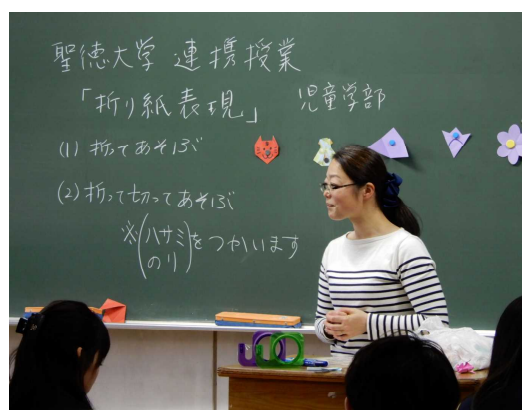 聖徳大学 連携授業
「折り紙表現」 児童学部
(1) 折ってあそぶ
(2) 折って切ってあそぶ
※(ハサミ
のり)をつかいます